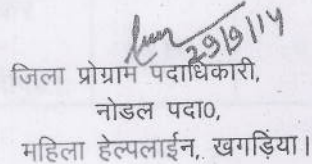 29/9/14
जिला प्रोग्राम पदाधिकारी,
नोडल पदा0,
महिला हेल्पलाईन, खगड़िया।